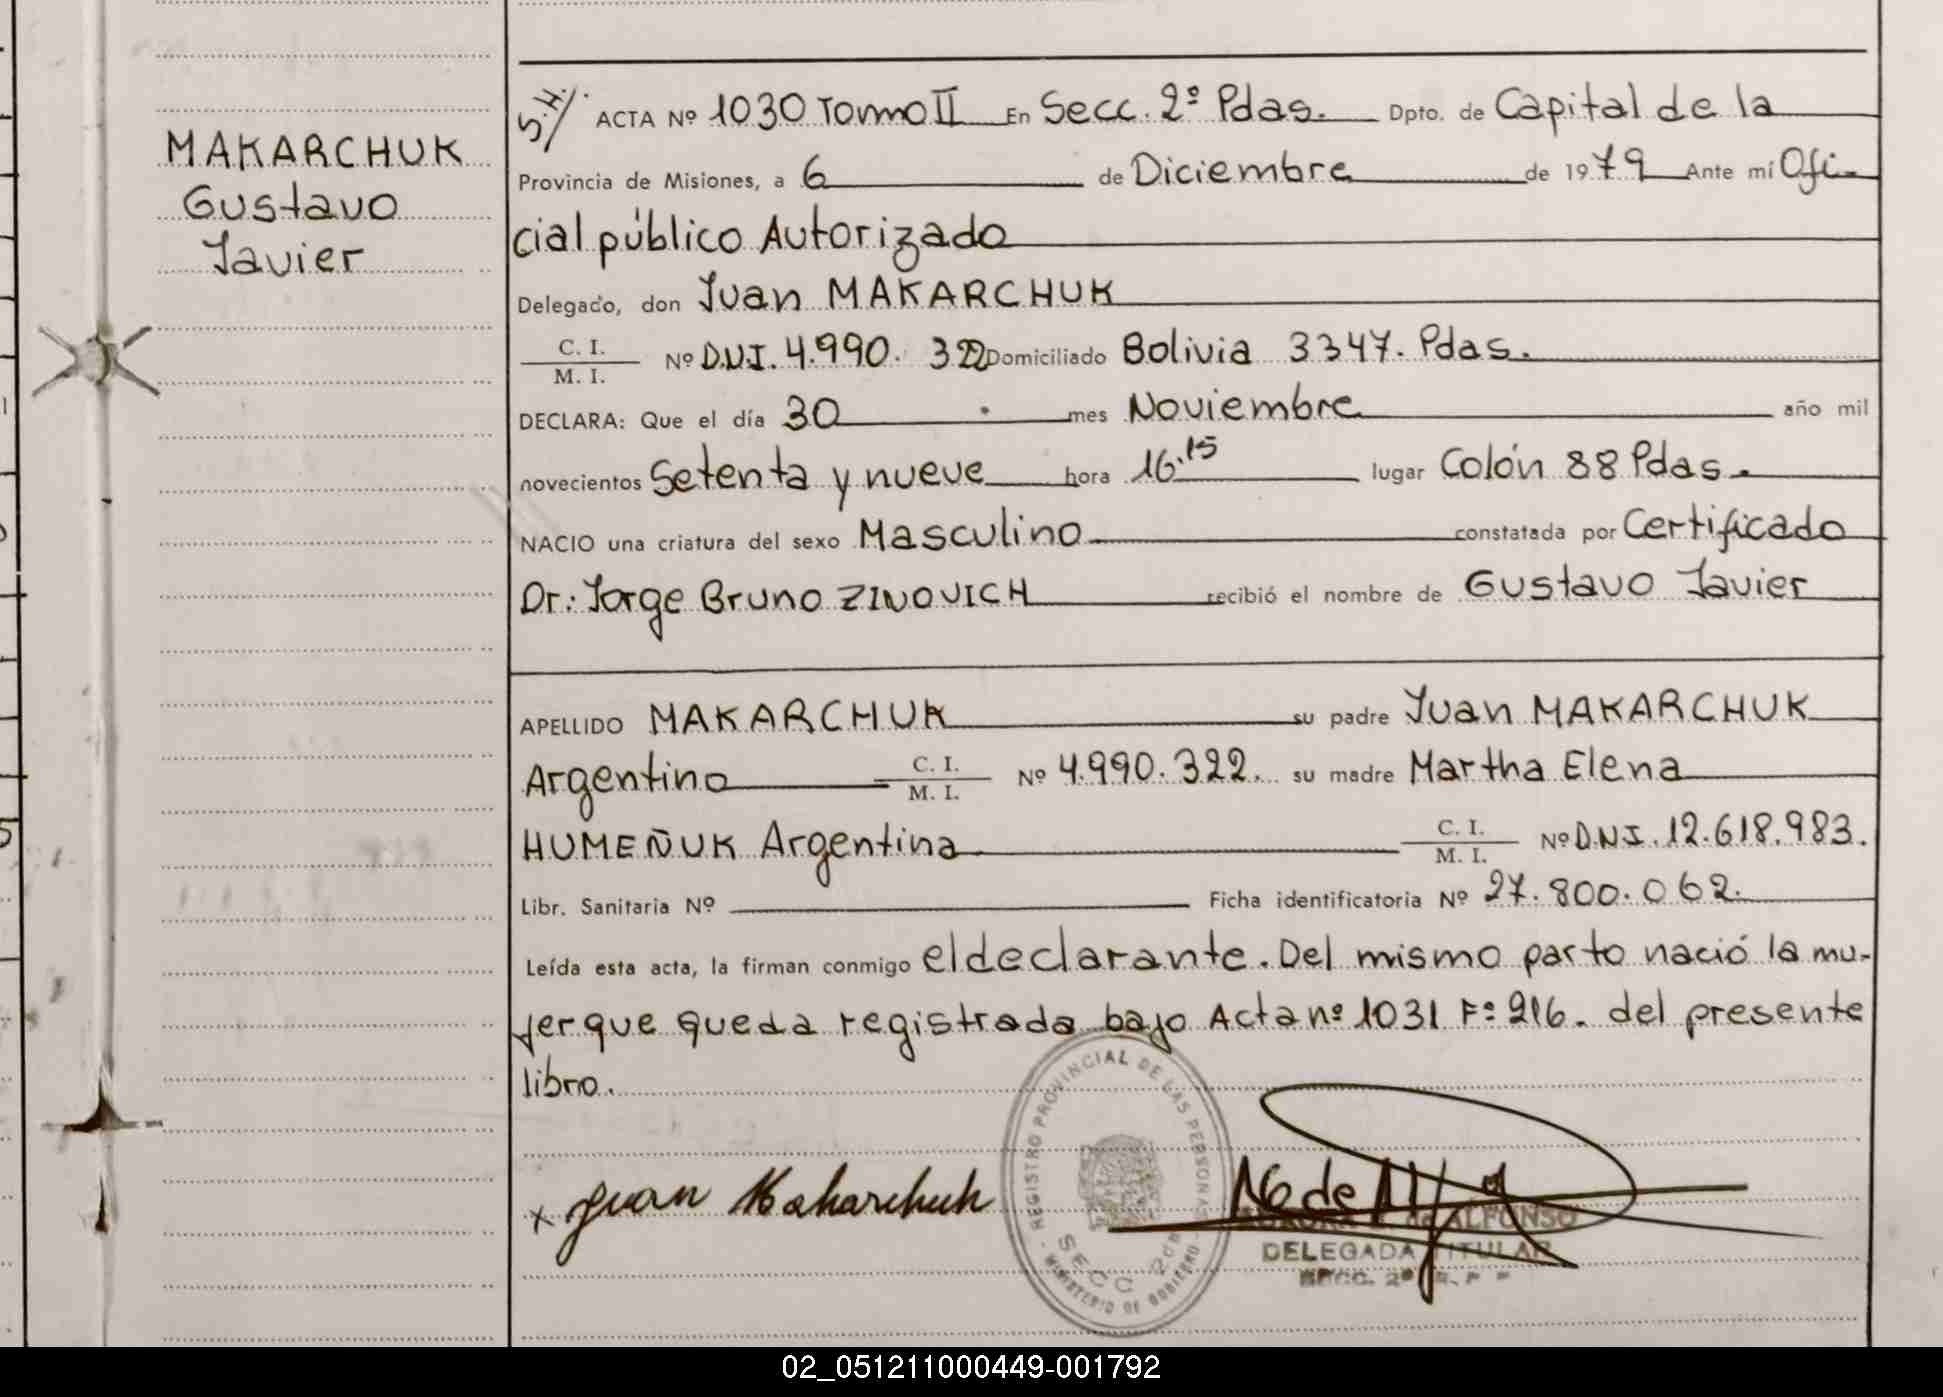 MAKARCHUK
Gustavo
Javier
S.H/. ACTA Nº 1030 Tomo II En Secc. 2º Pdas. Dpto. de Capital de la
Provincia de Misiones, a 6 de Diciembre de 1979 Ante mí Ofi-
cial público Autorizado
Delegado, don Juan MAKARCHUK
C. I. / M. I. Nº D.N.I. 4.990. 322 Domiciliado Bolivia 3347. Pdas.
DECLARA: Que el día 30 mes Noviembre año mil
novecientos Setenta y nueve hora 16.15 lugar Colón 88 Pdas.
NACIO una criatura del sexo Masculino constatada por Certificado
Dr: Jorge Bruno ZINOVICH recibió el nombre de Gustavo Javier
APELLIDO MAKARCHUK su padre Juan MAKARCHUK
Argentino C. I. / M. I. Nº 4.990.322. su madre Martha Elena
HUMEÑUK Argentina C. I. / M. I. Nº D.N.I. 12.618.983.
Libr. Sanitaria Nº Ficha identificatoria Nº 27.800.062.
Leída esta acta, la firman conmigo el declarante. Del mismo parto nació la mu-
jer que queda registrada bajo Acta nº 1031 Fº 216. del presente
libro.
REGISTRO PROVINCIAL DE LAS PERSONAS
SECC 2da
MINISTERIO DE GOBIERNO
x Juan Makarchuk
de ALFONSO
DELEGADA TITULAR
SECC. 2º
02_051211000449-001792